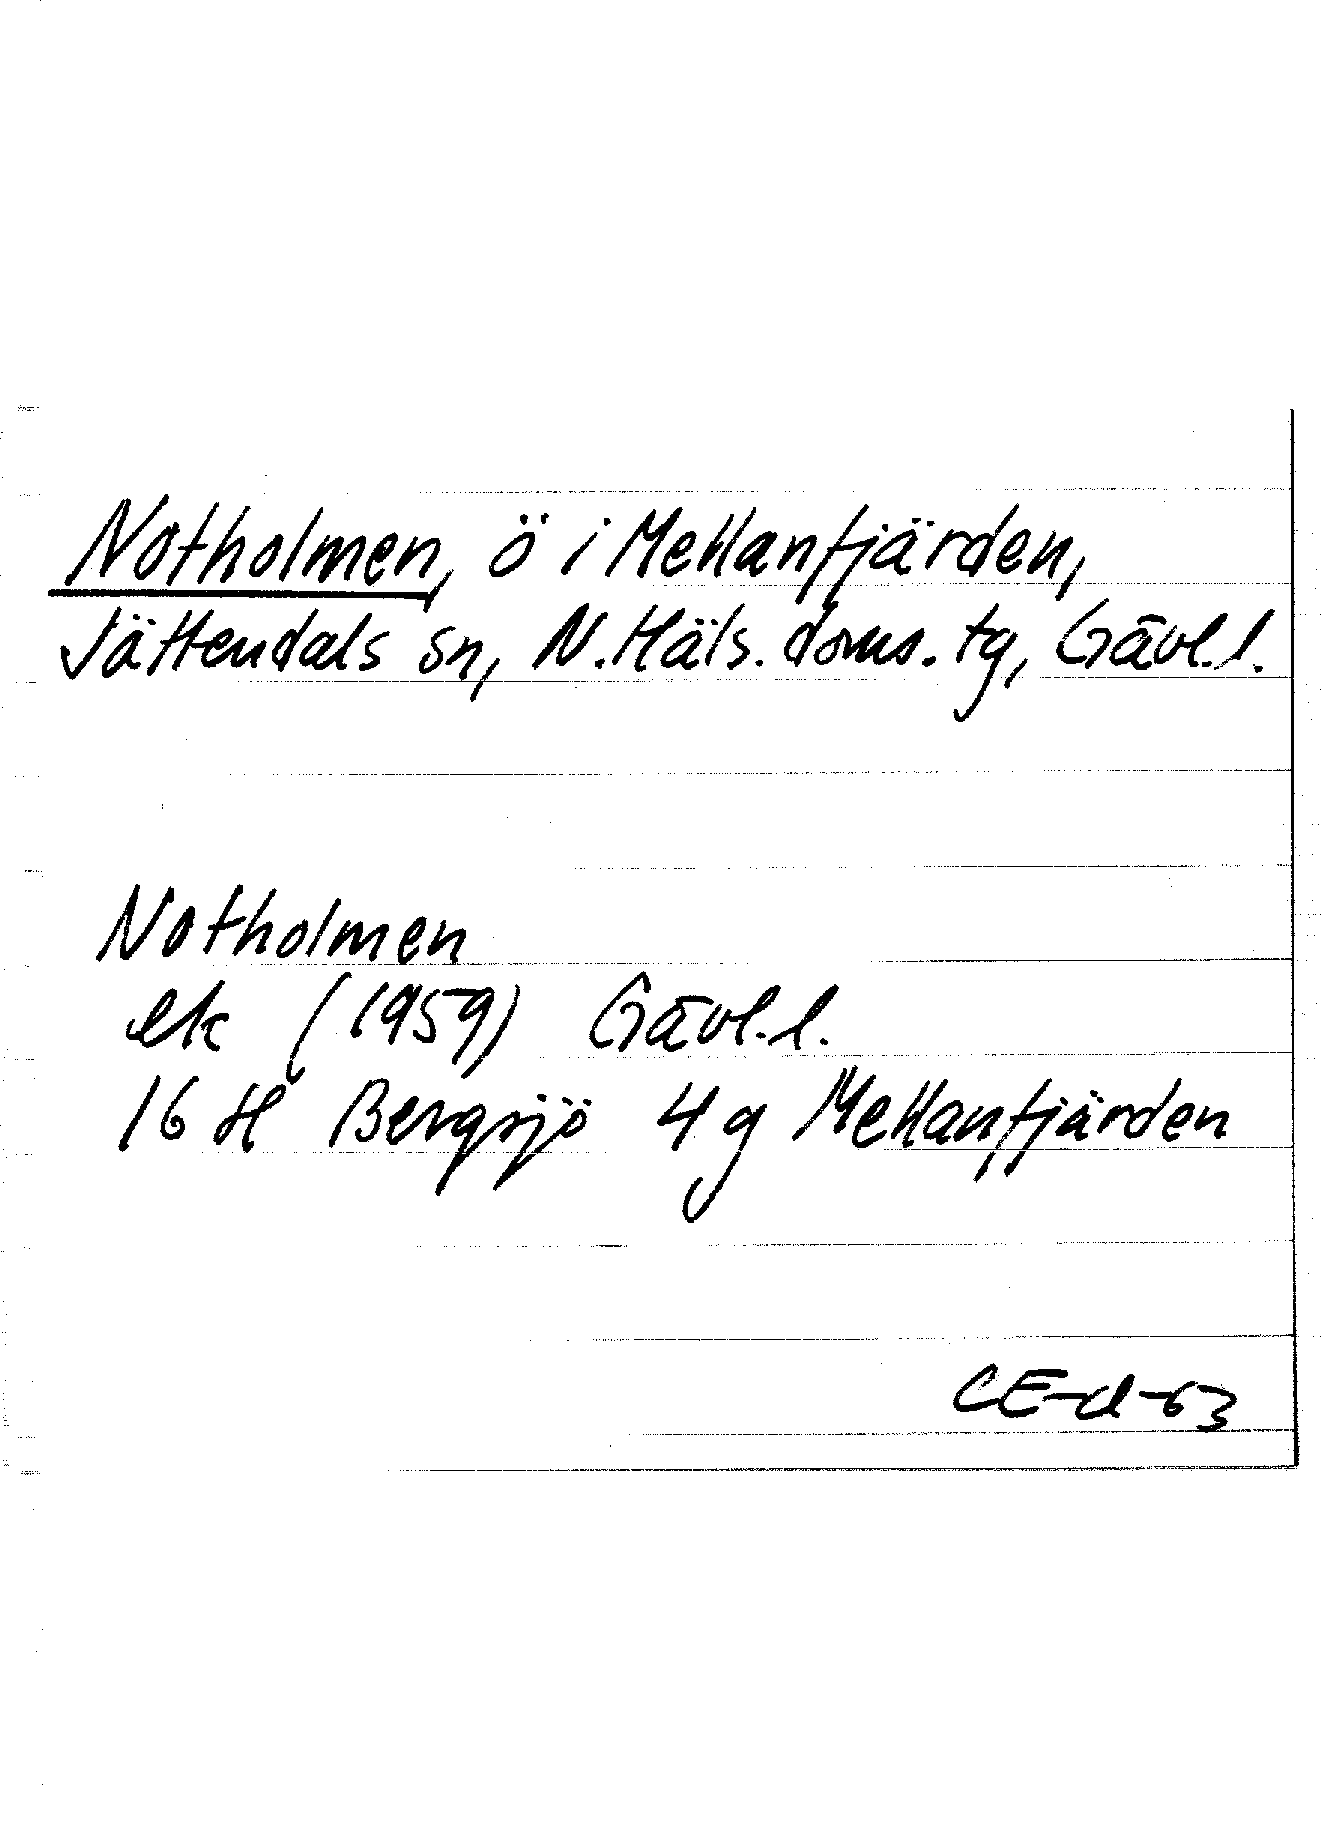 Notholmen, ö i Mellanfjärden,
Jättendals sn, N. Häls. doms. tg, Gävl. l.
Notholmen
ek (1959) Gävl. l.
16 H Bergsjö 4 g Mellanfjärden
CE-d-63